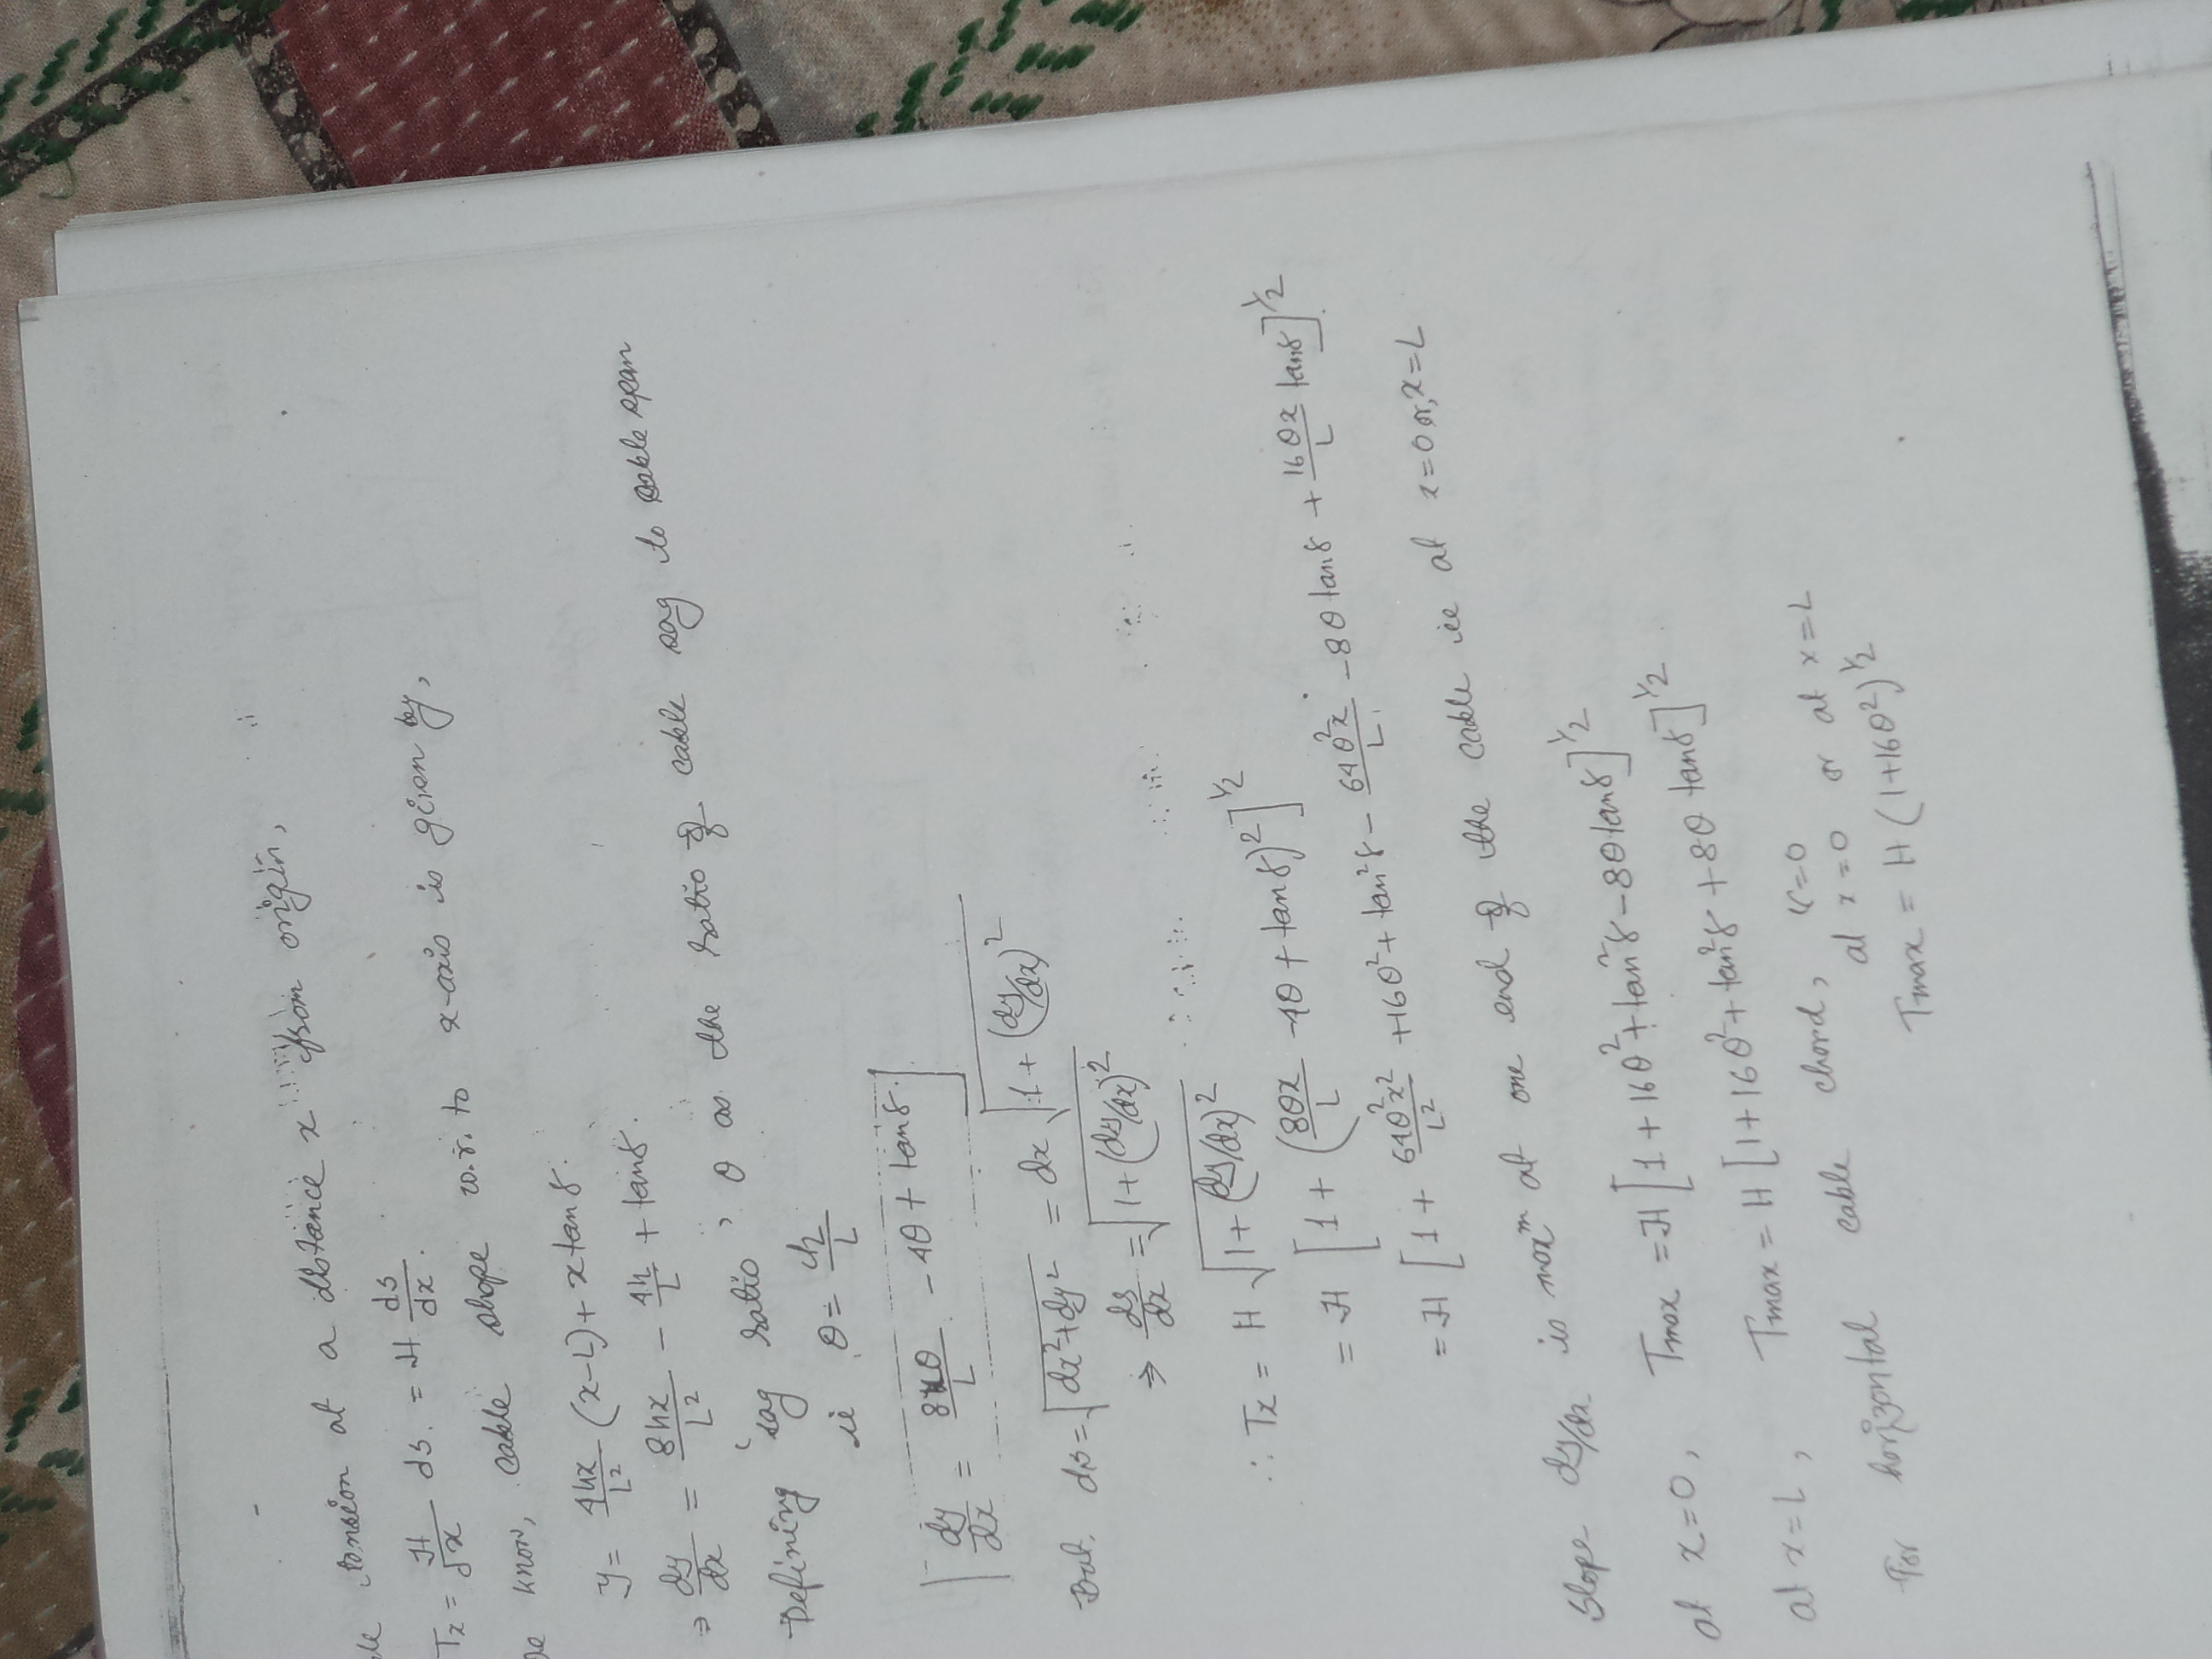 tension at a distance x from origin,
Tx = H/dx ds. = H ds/dx.
know, cable slope w.r. to x-axis is given by,
y = 4hx/L² (x-L) + x tanγ.
⇒ dy/dx = 8hx/L² - 4h/L + tanγ.
Defining 'sag ratio', θ as the ratio of cable sag to cable span
ie θ = h/L
dy/dx = 8xθ/L - 4θ + tanγ.
But. ds = √(dx²+dy²) = dx √(1+(dy/dx)²)
⇒ ds/dx = √(1+(dy/dx)²)
∴ Tx = H √(1+(dy/dx)²)
= H [1 + (8θx/L - 4θ + tanγ)²]^1/2
= H [1 + 64θ²x²/L² + 16θ² + tan²γ - 64θ²x/L - 8θ tanγ + 16θx/L tanγ]^1/2
Slope dy/dx is maxᵐ at one end of the cable ie at x=0 or, x=L
at x=0, Tmax = H [1 + 16θ² + tan²γ - 8θ tanγ]^1/2
at x=L, Tmax = H [1+16θ² + tan²γ + 8θ tanγ]^1/2
For horizontal cable chord, γ=0
at x=0 or at x=L
Tmax = H (1+16θ²)^1/2